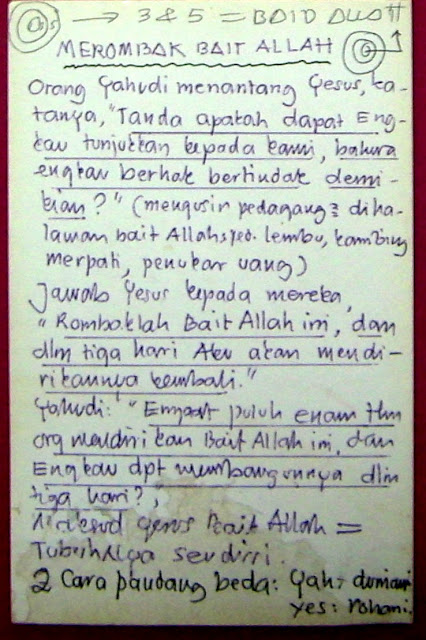 → 3 & 5 = BAID ALLOH
MEROMBAK BAIT ALLAH
Orang Yahudi menantang Yesus, ka-
tanya, "Tanda apakah dapat Eng-
kau tunjukkan kepada kami, bahwa
engkau berhak bertindak demi-
kian?" (mengusir pedagang² diha-
laman bait Allah lembu, kambing
merpati, penukar uang)
Jawab Yesus kepada mereka,
"Rombaklah Bait Allah ini, dan
dlm tiga hari Aku akan mendi-
rikannya kembali."
Yahudi: "Empat puluh enam thn
org mendirikan Bait Allah ini, dan
Engkau dpt membangunnya dlm
tiga hari?"
Maksud Yesus Bait Allah =
TubuhNya sendiri.
2 Cara pandang beda: Yah: duniawi
Yes: rohani.